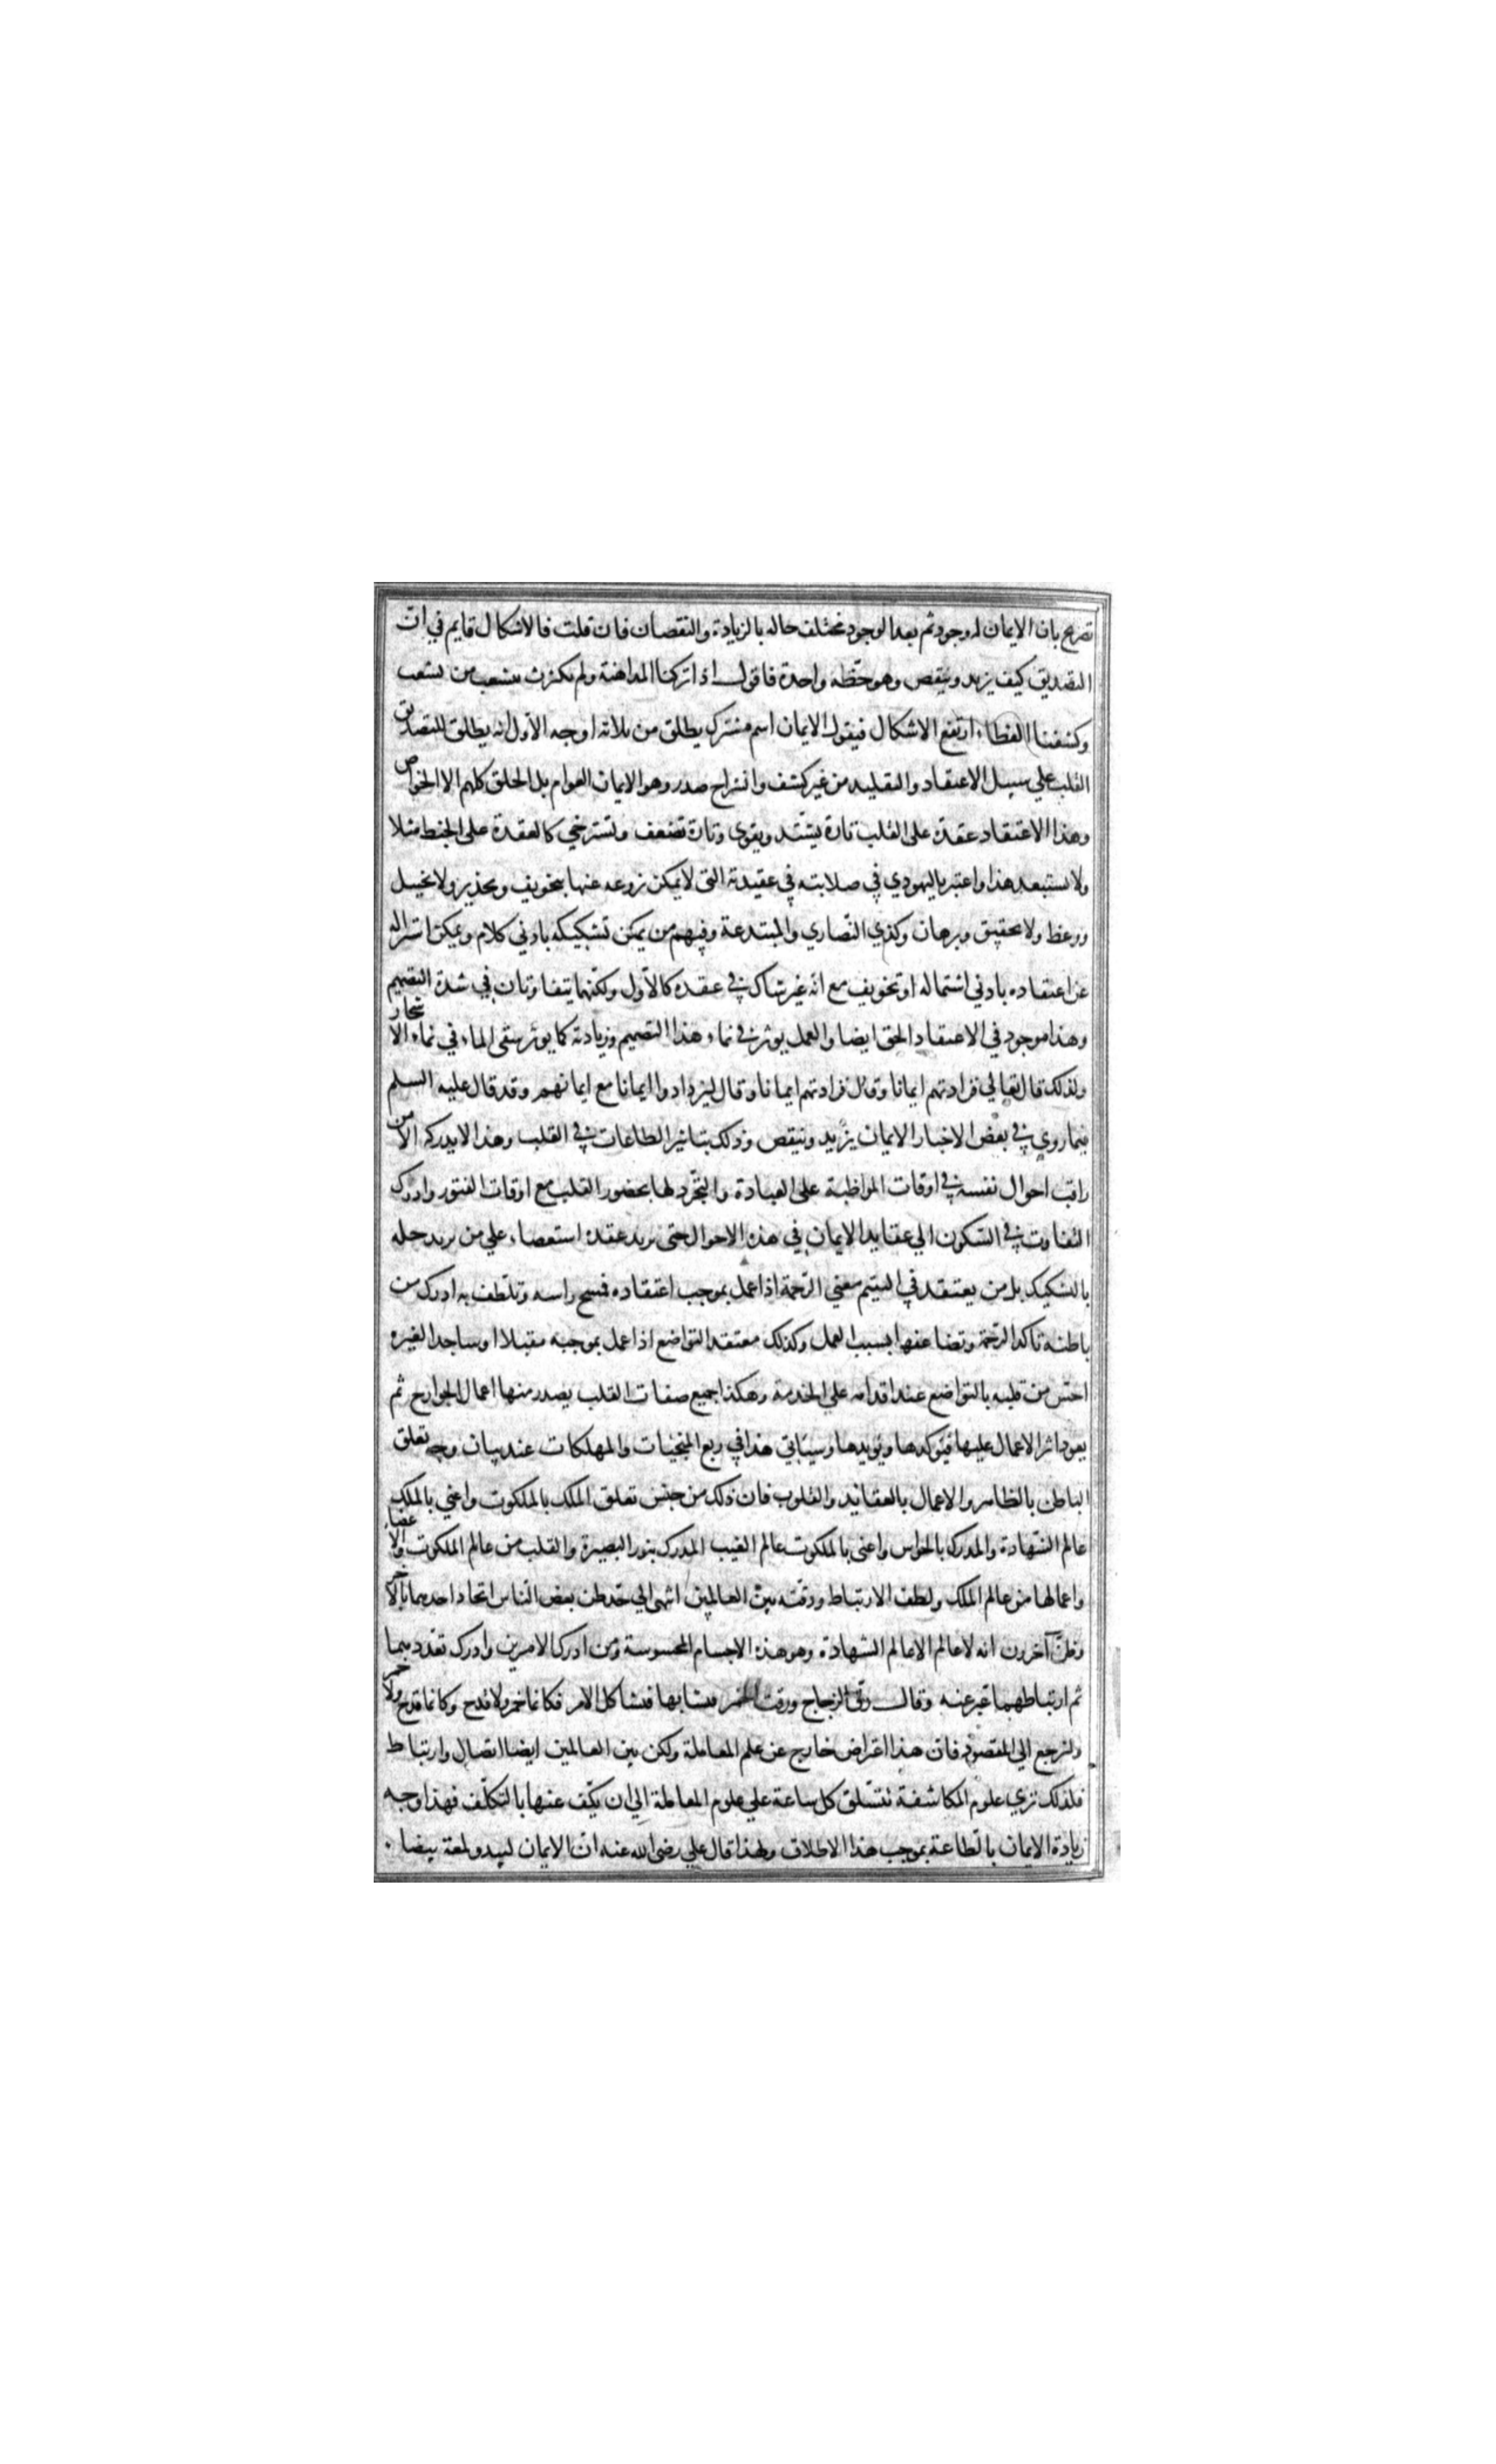 تصريح بان الايمان له وجود ثم بعد الوجود يختلف حاله بالزيادة والنقصان فان قلت فالاشكال قايم في ان
التصديق كيف يزيد وينقص وهو خطه واحدة فاقول اذا تركنا المداهنة ولم نكترث بتشعب من تشعب
وكشفنا الغطاء ارتفع الاشكال فيقول الايمان اسم مشترك يطلق من ثلاثه اوجه الاول انه يطلق للتصديق
القلب علي سبيل الاعتقاد والتقليد من غير كشف وانشراح صدر وهو الايمان العوام بل الخلق كلهم الا الخواص
وهذا الاعتقاد عقدة على القلب تارة يشتد ويقوى وتارة تضعف وتسترخي كالعقدة على الخيط مثلا
ولا تستبعد هذا واعتبر باليهودي في صلابته في عقيدته التى لا يمكن نزوعه عنها بتخويف وتحذير ولا تخييل
ووعظ ولا تحقيق وبرهان وكذي النصاري والمبتدعة وفيهم من يمكن تشكيكه بادني كلام ويمكن استنزاله
عن اعتقاده بادني استماله او تخويف مع انه غير شاك في عقده كالاول ولكنهما يتفاوتان في شدة التصميم
وهذا موجود في الاعتقاد الحق ايضا والعمل يوثر في نماء هذا التصميم وزيادته كما يوثر سقى الماء في نماء الاشجار
ولذلك قال تعالي فزادتهم ايمانا وقال فزادتهم ايمانا وقال ليزدادوا ايمانا مع ايمانهم وقد قال عليه السلم
فيما روي في بعض الاخبار الايمان يزيد وينقص وذلك بتاثير الطاعات في القلب وهذا لا يدركه الا من
راقب احوال نفسه في اوقات المواظبة على العبادة والتجرد لها بحضور القلب مع اوقات الفتور وادرك
التفاوت في السكون الي عقايد الايمان في هذه الاحوال حتى يزيد عقده استعصاء علي من يريد حله
بالتشكيك بل من يعتقد في اليتيم معني الرحمة اذا عمل بموجب اعتقاده فمسح راسه وتلطف به ادرك من
باطنه تاكد الرحمة وتضاعفها بسبب العمل وكذلك معتقد التواضع اذا عمل بموجبه مقبلا او ساجدا لغيره
احس من قلبه بالتواضع عند اقدامه علي الخدمة وهكذا جميع صفات القلب يصدر منها اعمال الجوارح ثم
يعود اثر الاعمال عليها فيوكدها ويويدها وسيتاتي هذا في ربع المنجيات والمهلكات عند بيان وجه تعلق
الباطن بالظاهر والاعمال بالعقائد والقلوب فان ذلك من جنس تعلق الملك بالملكوت واعني بالملك
عالم الشهادة والمدرك بالحواس واعنى بالملكوت عالم الغيب المدرك بنور البصيرة والقلب من عالم الملكوت والاعضاء
واعمالها من عالم الملك ولطف الارتباط ودقته بين العالمين انتهى الي حد ظن بعض الناس اتحاد احدهما بالاخر
وظن آخرون انه لا عالم الا عالم الشهادة وهو هذه الاجسام المحسوسة ومن ادرك الامرين وادرك تعددهما
ثم ارتباطهما عبر عنه وقال رق الزجاج ورقت الخمر فتشابها فتشاكل الامر فكانما خمر ولا قدح وكانما قدح ولا خمر
ولنرجع الي المقصود فان هذا اعتراض خارج عن علم المعاملة ولكن بين العالمين ايضا اتصال وارتباط
فلذلك تري علوم المكاشفة تتسلق كل ساعة علي علوم المعاملة الي ان يكف عنها بالتكلف فهذا وجه
زيادة الايمان بالطاعة بموجب هذا الاطلاق ولهذا قال علي رضى الله عنه ان الايمان ليبدو لمعة بيضاء